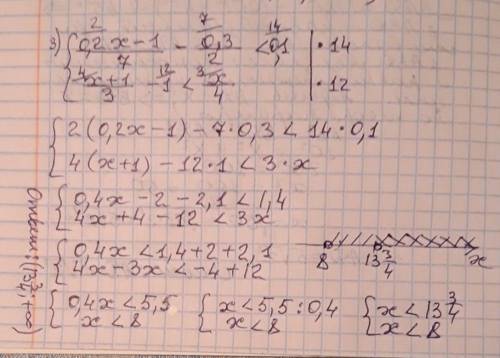 3) { (0,2x-1)/7 - 0,3/2 < 0,1 | ·14
{ (x+1)/3 - 1 < x/4 | ·12
{ 2(0,2x-1) - 7·0,3 < 14·0,1
{ 4(x+1) - 12·1 < 3·x
{ 0,4x - 2 - 2,1 < 1,4
{ 4x + 4 - 12 < 3x
{ 0,4x < 1,4 + 2 + 2,1
{ 4x - 3x < -4 + 12
8 13 3/4 x
{ 0,4x < 5,5 { x < 5,5 : 0,4 { x < 13 3/4
{ x < 8 { x < 8 { x < 8
Ответ: (13 3/4; +∞)